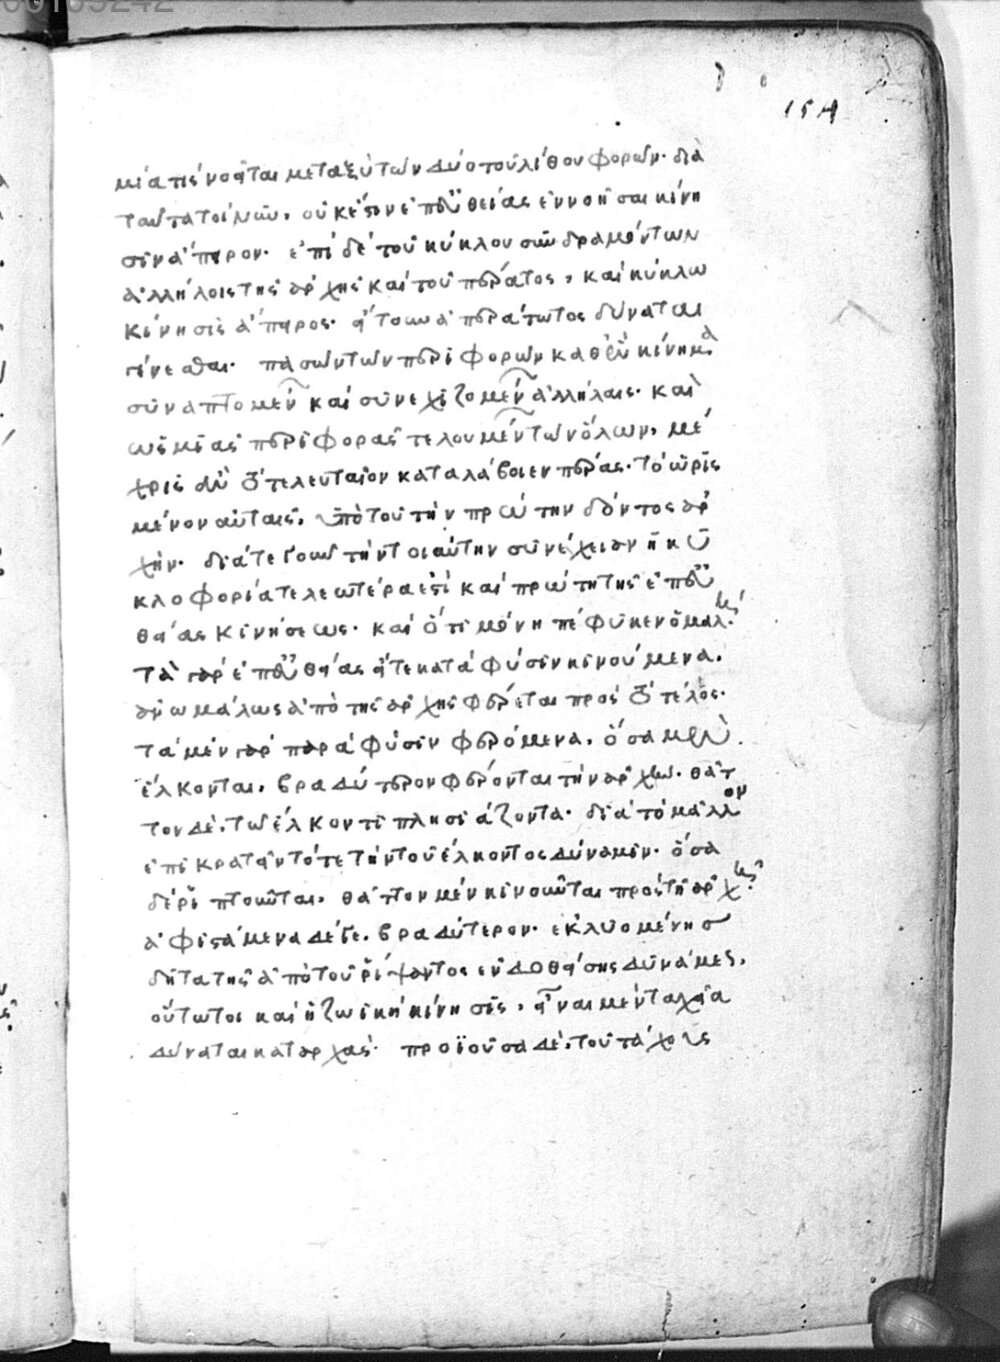 154
μία τις νοῆται μεταξὺ τῶν δύο τοῦ λίθου φορῶν· διὰ
ταῦτα τοίνυν, οὐκ ἔστιν ἐπ' εὐθείας ἐννοῆσαι κίνη
σιν ἄπειρον· ἐπὶ δὲ τοῦ κύκλου συνδραμόντων
ἀλλήλοις τῆς ἀρχῆς καὶ τοῦ πέρατος, καὶ κύκλω
κίνησις ἄπειρος· ἤτοι ἀπεράτωτος δύναται
γίνεσθαι· πασῶν τῶν περιφορῶν καθ' ἓν κίνημα
συναπτομένων καὶ συνεχιζομένων ἀλλήλαις· καὶ
ὡς μιᾶς περιφορᾶς τελουμένων τῶν ὅλων, μέ
χρις ἂν τὸ τελευταῖον καταλάβοιεν πέρας· τὸ ὡρισ
μένον αὐταῖς, ὑπὸ τοῦ τὴν πρώτην δόντος ἀρ
χήν· διά τε γοῦν τὴν τοιαύτην συνέχειαν ἡ κυ
κλοφορία τελεωτέρα ἐστὶ καὶ πρώτη τῆς ἐπ' εὐ
θείας κινήσεως· καὶ ὅτι μόνη πέφυκεν ὁμαλής·
τὰ γὰρ ἐπ' εὐθείας ἤτε κατὰ φύσιν κινούμενα,
ἀνωμάλως ἀπὸ τῆς ἀρχῆς φέρεται πρὸς τὸ τέλος·
τὰ μὲν γὰρ παρὰ φύσιν φερόμενα, ὅσα μὲν
ἕλκονται, βραδύτερον φέρονται τὴν ἀρχὴν· θᾶτ
τον δὲ, τῶ ἕλκοντι πλησιάζοντα· διὰ τὸ μᾶλλον
ἐπικρατεῖν τότε τὴν τοῦ ἕλκοντος δύναμιν· ὅσα
δὲ ῥιπτοῦνται, θᾶττον μὲν κινοῦνται πρὸς τῆ ἀρχῆς
ἀφιστάμενα δέ γε, βραδύτερον· ἐκλυομένης
δῆτα τῆς ἀπὸ τοῦ ῥίψαντος ἐνδοθείσης δυνάμεως,
οὕτω τοι καὶ ἡ ζωϊκὴ κίνησις, εἶναι μὲν ταχεῖα
δύναται κατ' ἀρχάς· προϊοῦσα δὲ, τοῦ τάχους